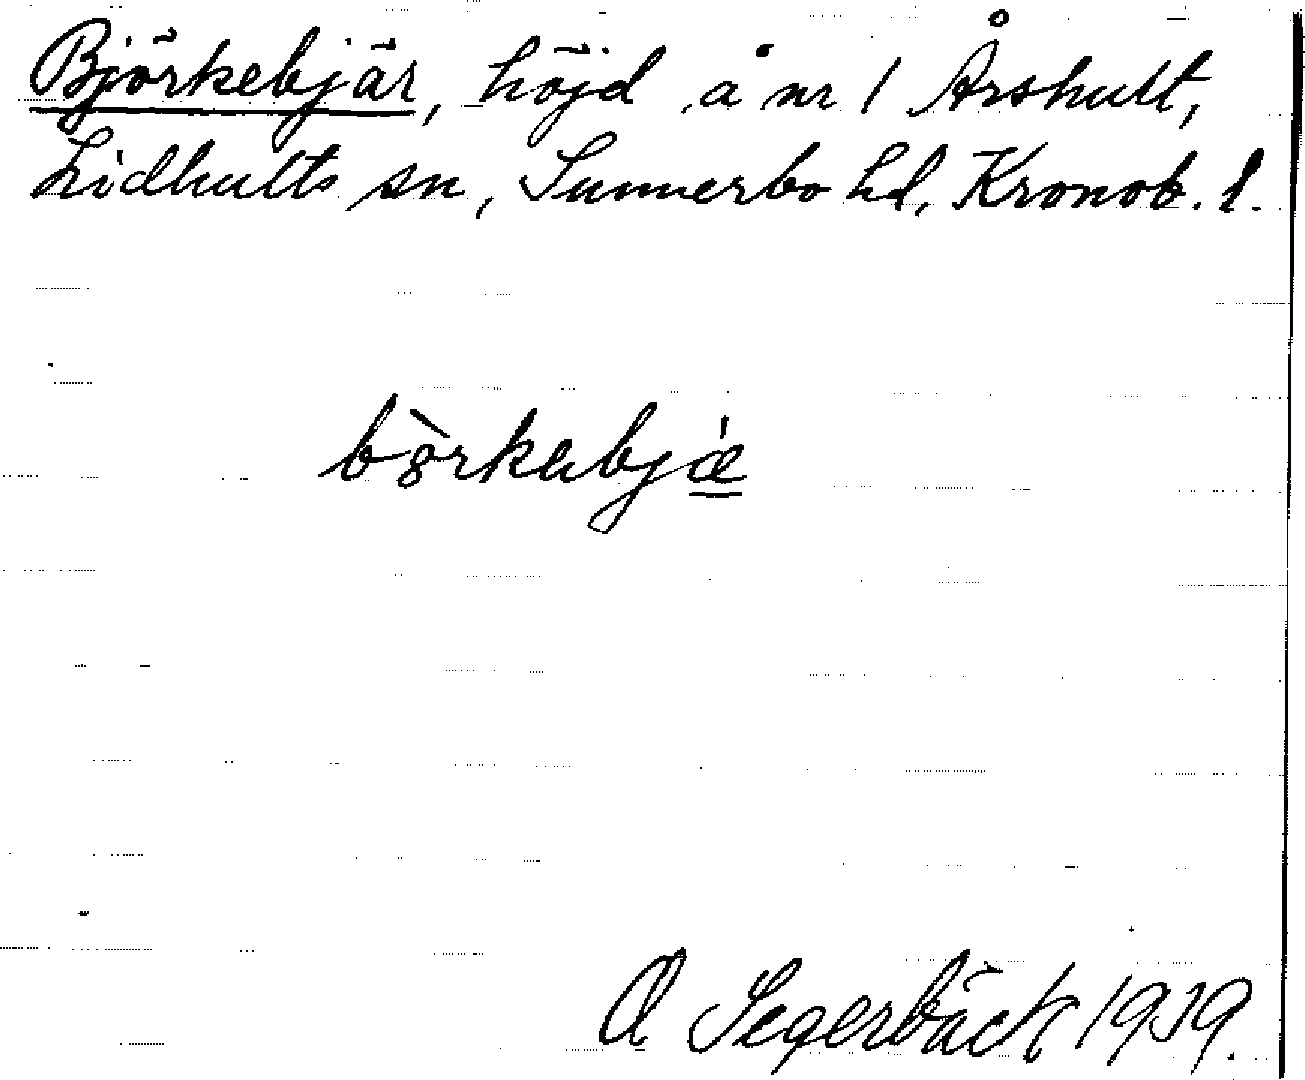 Björkebjär, höjd å nr 1 Årshult,
Lidhults sn, Sunnerbo hd, Kronob. l.
bȯ̀rkebjǽ
O Segerbäck 1939.